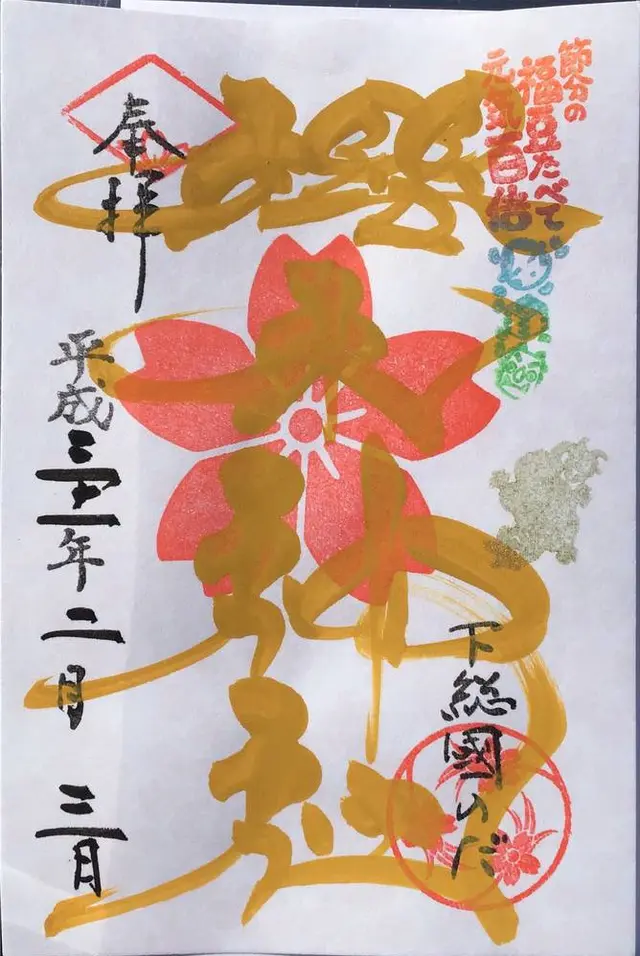 節分の
福豆たべて
元気百倍
下総國のだ
櫻木神社
奉拝
平成三十一年二月三日